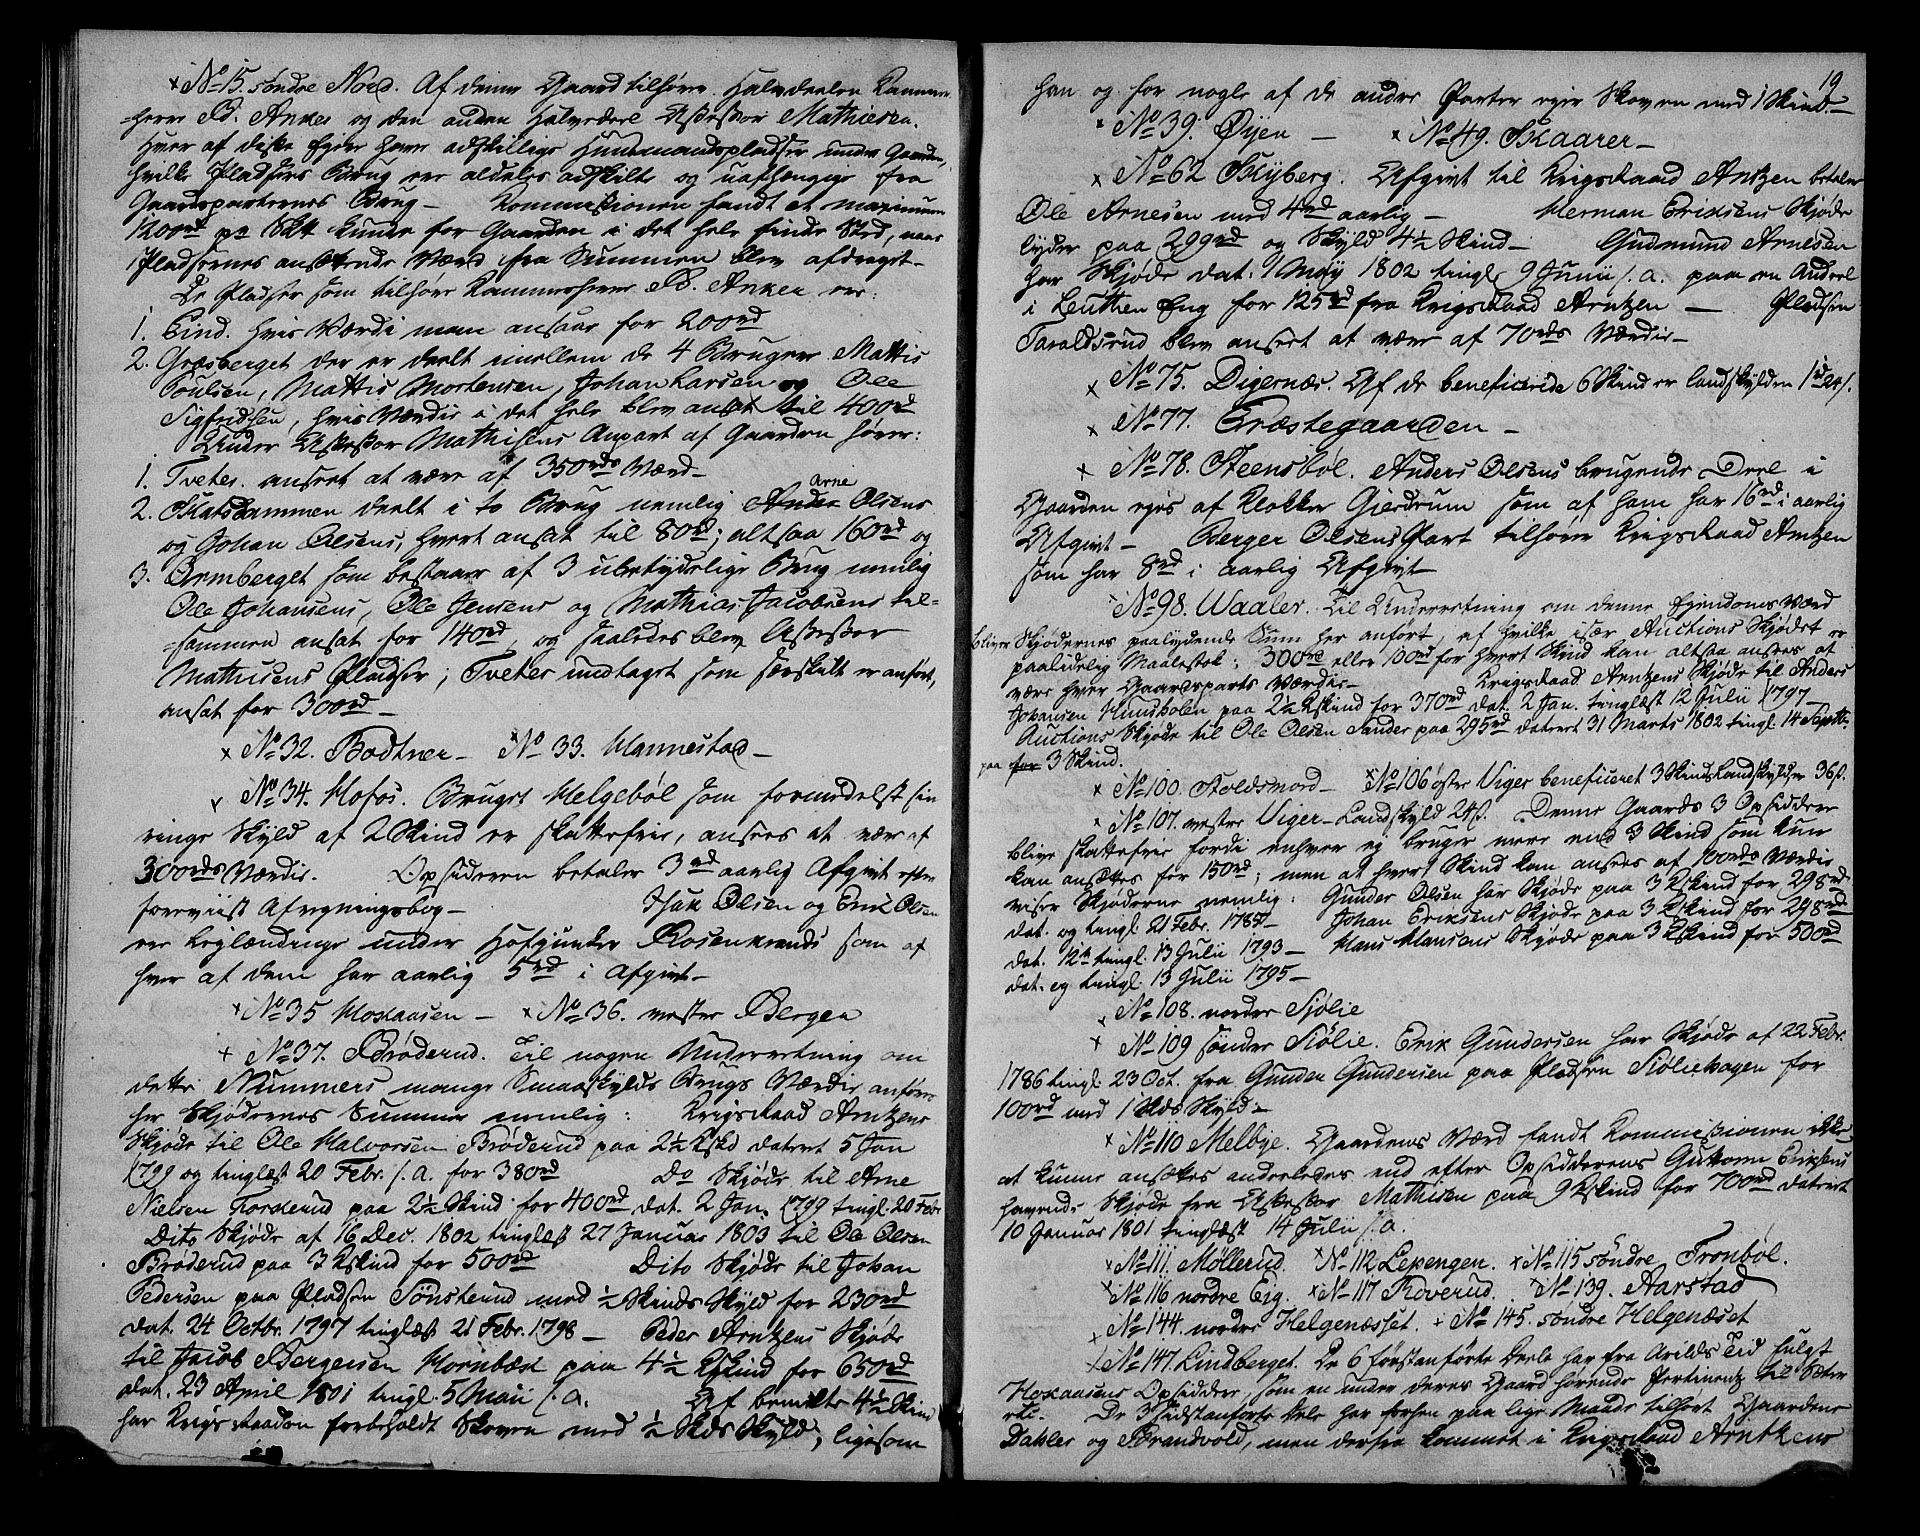 × No 15. søndre Nord. Af denne Gaard tilhører Halvdeelen Kammer-
=herre B. Anker og den anden Halvdeel Assessor Mathiesen.
Hver af disse Eiere have adskillige Huusmandspladser under Gaarden,
hvilke Pladsers Brug er aldeles adskilte og uafhængige fra
Gaardparternes Brug – Kommissionen fandt et maximum
1200rd pr Skd kunde for Gaarden i det hele finde Sted, naar
Pladsernes ansættende Værd fra Summen blev afdraget –
De Pladser som tilhøre Kammerherre B. Anker ere:
1. Eind. hvis Værdi man ansaae for 200rd
2. Græsberget der er deelt imellem de 4 Brugere Mattis
Poulsen, Mattis Mortensen, Johan Larsen og Ole
Sigfridsen, hvis Værdie i det hele blev ansat til 400rd
Under Assessor Mathisens Anpart af Gaarden hører:
1. Tveter. anseet at være af 350rds Værd –
2. Skatskammen deelt i to Brug nemlig Arne Olsens
og Johan Olsens, hvert ansat til 80rd; altsaa 160rd og
3. Ormberget som bestaaer af 3 ubetydelige Brug nemlig
Ole Johansens, Ole Jensens og Mathias Jacobsens til-
=sammen ansat for 140rd, og saaledes blev Assessor
Mathisens Pladser, Tveter undtaget som særskilt er anført,
ansat for 300rd –
× No 32. Bodtner – × No 33. Mannestad –
× No 34. Hofos. Bruget Helgebøl som formedelst sin
ringe Skyld af 2 Skind er skattefrie, ansees at være af
300rds Værdie. Opsidderen betaler 3rd aarlig Afgivt efter
foreviist Afregningsbog – Isak Olsen og Erik Olsen
ere Leylændinge under Hofjunker Rosenkrands som af
hver af dem har aarlig 5rd i Afgivt –
× No 35 Hokaasen – × No 36. vestre Bergen
+ No 37. Brøderud. Til nogen Underretning om
dette Nummers mange Smaaskylds Brugs Værdie anføres
her Skjødernes Summer nemlig: Krigsraad Arntzens
Skjøde til Ole Halvorsen Brøderud paa 2½ Skd dateret 5 Jan
1799 og tinglæst 20 Febr. s.a. for 380rd Do Skjøde til Arne
Nielsen Forkerud paa 2½ Skind for 400rd dat. 2 Jan. 1799 tingl. 20 Febr
Dito Skjøde af 16 Dec. 1802 tinglæst 27 Januar 1803 til Ole Olsen
Brøderud paa 3 Skind for 500rd Dito Skjøde til Johan
Pedersen paa Pladsen Tønsterud med ½ Skinds Skyld for 230rd
dat. 24 Octbr. 1797 tinglæst 21 Febr. 1798 – Peder Arntzens Skjøde
til Jacob Bergersen Hornbæk paa 4½ Skind for 650rd
dat. 23 April 1801 tingl. 5 Maii s.a. Af bemeldte 4½ Skind
har Krigsraaden forbeholdt Skoven med ½ Skds Skyld, ligesom
19
han og for nogle af de andre Parter eyer Skoven med 1 Skind –
× No 39. Øyen – × No 49. Skaarer –
× No 62 Skyberg. Afgivt til Krigsraad Arntzen betaler
Ole Arnesen med 4rd aarlig – Herman Eriksens Skjøde
lyder paa 299rd og Skyld 4½ Skind – Gudmund Arnesen
har Skjøde dat. 1 May 1802 tingl. 9 Junii s.a. paa en Andeel
i Leuthen Eng for 125rd fra Krigsraad Arntzen – Pladsen
Taraldsrud blev anseet at være af 70rds Værdie –
× No 75. Digernæs. Af de beneficerede 6 Skind er landskylden 1rd 24s.
× No 77. Præstegaarden –
× No 78. Steensbøl. Anders Olsens brugende Deel i
Gaarden eyes af Klokker Gjerdrum som af ham har 16rd i aarlig
Afgivt – Berger Olsens Part tilhører Krigsraad Arntzen
som har 8rd i aarlig Afgivt –
× No 98. Waaler. Til Underretning om denne Eyendoms Værd
bliver Skjødernes paalydende Sum her anført, af hvilke især Auctions Skjødet er
paalidelig Maalestok; 300rd eller 100rd for hvert Skind kan altsaa ansees at
være hver Gaardparts Værdie – Krigsraad Arntzens Skjøde til Anders
Johansen Huusholen paa 2½ Skind for 370rd dat. 2 Jan. tinglæst 12 Julii 1797 –
Auctions Skjøde til Ole Olsen Sander paa 295rd dateret 31 Marts 1802 tingl. 14 Septbr.
paa for 3 Skind.
× No 100. Stoldsmord – × No 106 østre Viger beneficeret 3 Skinds Landskyld er 36s.
× No 107. vestre Viger – Landskyld 24s. Denne Gaards 3 Opsiddere
blive skattefrie fordi enhver ej bruger mere end 3 Skind som kun
kan ansættes for 150rd; men at hvert Skind kan ansees af 100rds Værdie
viser Skjøderne nemlig: Gunder Olsen har Skjøde paa 3 Skind for 298rd
dat. og tingl. 21 Febr. 1787 – Johan Eriksens Skjøde paa 3 Skind for 298rd
dat. 12 tingl. 13 Julii 1793 – Hans Hansens Skjøde paa 3 Skind for 500rd
dat. og tingl. 13 Julii 1795 –
× No 108. nordre Sjølie
× No 109 søndre Siølie. Erik Gundersen har Skjøde af 22 Febr.
1786 tingl. 23 Oct. fra Gunder Gundersen paa Pladsen Siøliehagen for
100rd med 1 Skds Skyld –
× No 110 Melbye. Gaardens Værd fandt Kommissionen ikke
at kunne ansættes anderledes end efter Opsidderens Guttorm Eriksens
havende Skjøde fra Assessor Mathisen paa 9 Skind for 700rd dateret
10 Januar 1801 tinglæst 14 Julii s.a.
× No 111. Møllerud. × No 112 Lepengen. × No 115 søndre Tronbøl.
× No 116 nordre Eig. × No 117 Froverud. × No 139. Aarstad
× No 144. nordre Helgenæsset. + No 145. søndre Helgenæset
× No 147. Lindberget. De 6 førstanførte Dele har fra Arilds Tid fulgt
Hokaasens Opsiddere, som en under deres Gaard hørende Pertinentz til Sæter
etc. De 3 sidstanførte Dele har forhen paa lige Maade tilhørt Gaardene
Dahler og Strandvold, men derfra kommet i Krigsraad Arntzens